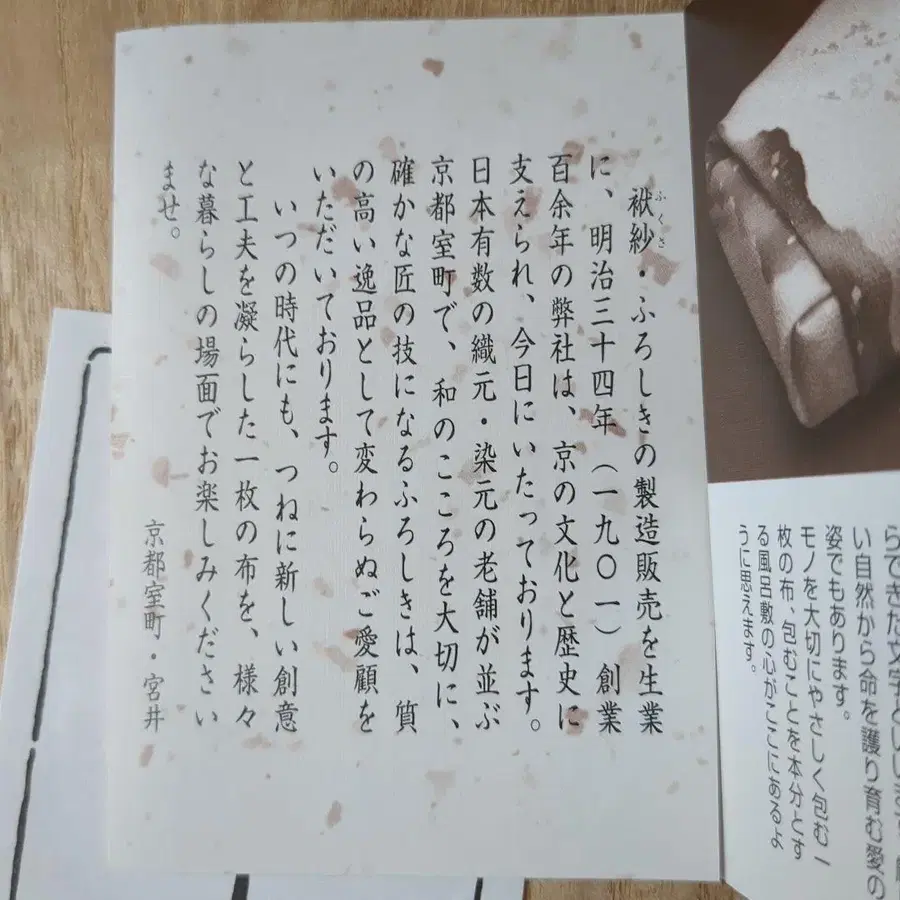 袱紗・ふろしきの製造販売を生業
ふくさ
に、明治三十四年（一九〇一）創業
百余年の弊社は、京の文化と歴史に
支えられ、今日にいたっております。
日本有数の織元・染元の老舗が並ぶ
京都室町で、和のこころを大切に、
確かな匠の技になるふろしきは、質
の高い逸品として変わらぬご愛顧を
いただいております。
いつの時代にも、つねに新しい創意
と工夫を凝らした一枚の布を、様々
な暮らしの場面でお楽しみください
ませ。
京都室町・宮井
らできた文字といいます
い自然から命を護り育む愛の
姿でもあります。
モノを大切にやさしく包む一
枚の布、包むことを本分とす
る風呂敷の心がここにあるよ
うに思えます。